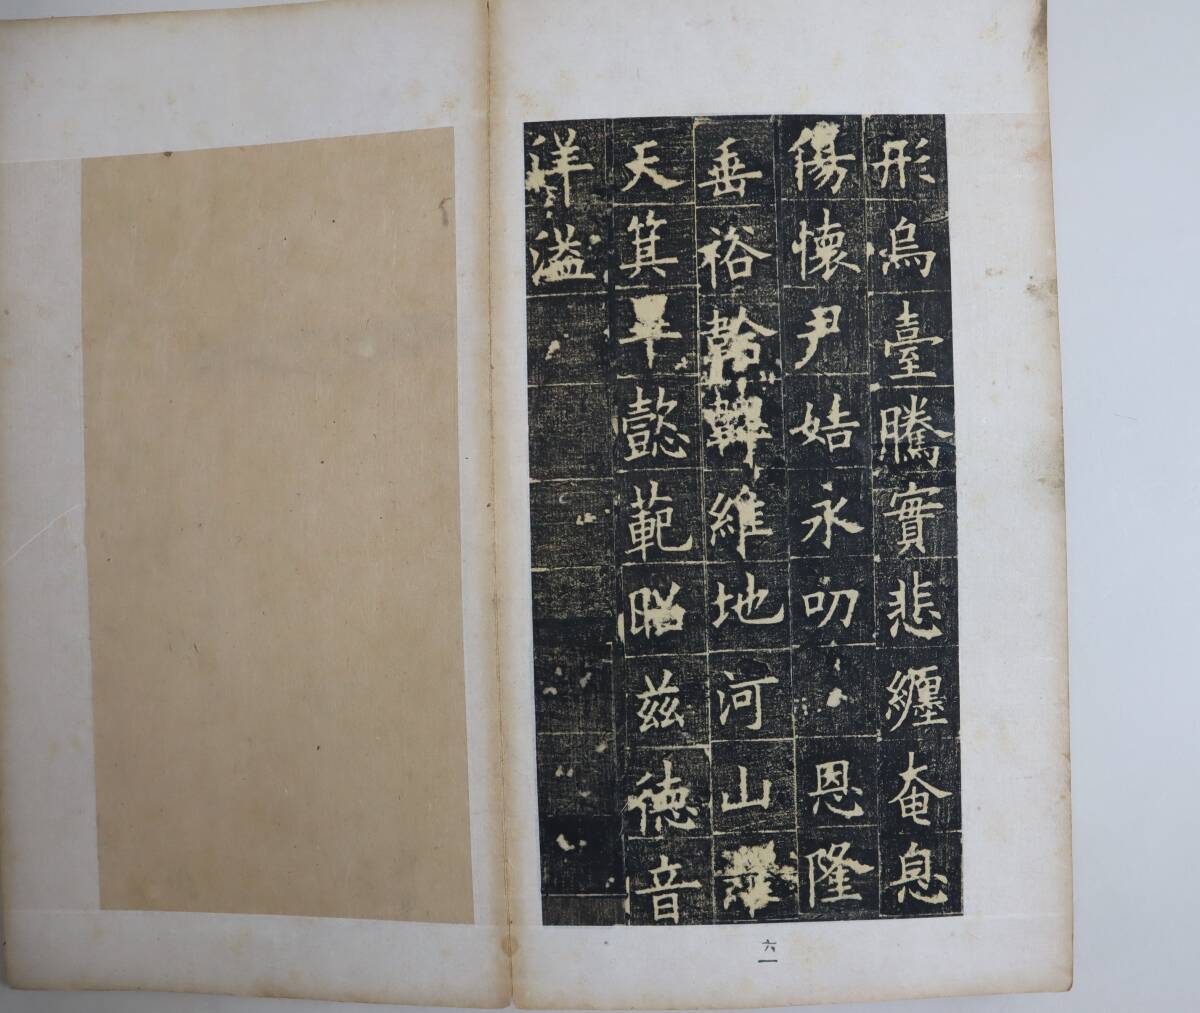 形烏臺騰實悲纏奄息
傷懷尹姞永叨恩隆
垂裕維地河山
天箕畢懿範昭茲德音
洋溢
六一